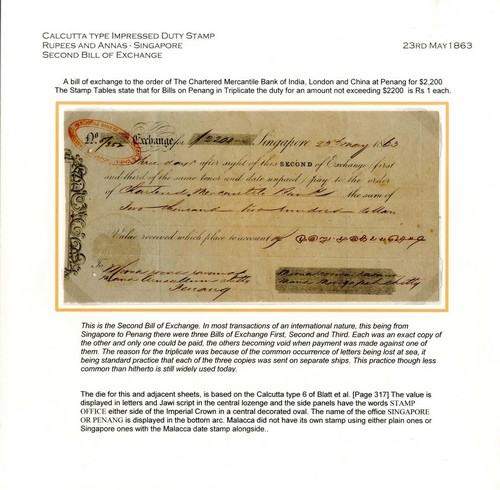 CALCUTTA TYPE IMPRESSED DUTY STAMP
RUPEES AND ANNAS - SINGAPORE
SECOND BILL OF EXCHANGE
23RD MAY 1863
A bill of exchange to the order of The Chartered Mercantile Bank of India, London and China at Penang for $2,200
The Stamp Tables state that for Bills on Penang in Triplicate the duty for an amount not exceeding $2200 is Rs 1 each.
No. Exchange for $2200 Singapore 23rd May 1863
Three days after sight of this SECOND of Exchange (first
and third of the same tenor and date unpaid) pay to the order
of Chartered Mercantile Bank the sum of
Two thousand two hundred dollars
Value received which place to account of
To
Penang
This is the Second Bill of Exchange. In most transactions of an international nature, this being from
Singapore to Penang there were three Bills of Exchange First, Second and Third. Each was an exact copy of
the other and only one could be paid, the others becoming void when payment was made against one of
them. The reason for the triplicate was because of the common occurrence of letters being lost at sea, it
being standard practice that each of the three copies was sent on separate ships. This practice though less
common than hitherto is still widely used today.
The die for this and adjacent sheets, is based on the Calcutta type 6 of Blatt et al. [Page 317] The value is
displayed in letters and Jawi script in the central lozenge and the side panels have the words STAMP
OFFICE either side of the Imperial Crown in a central decorated oval. The name of the office SINGAPORE
OR PENANG is displayed in the bottom arc. Malacca did not have its own stamp using either plain ones or
Singapore ones with the Malacca date stamp alongside..